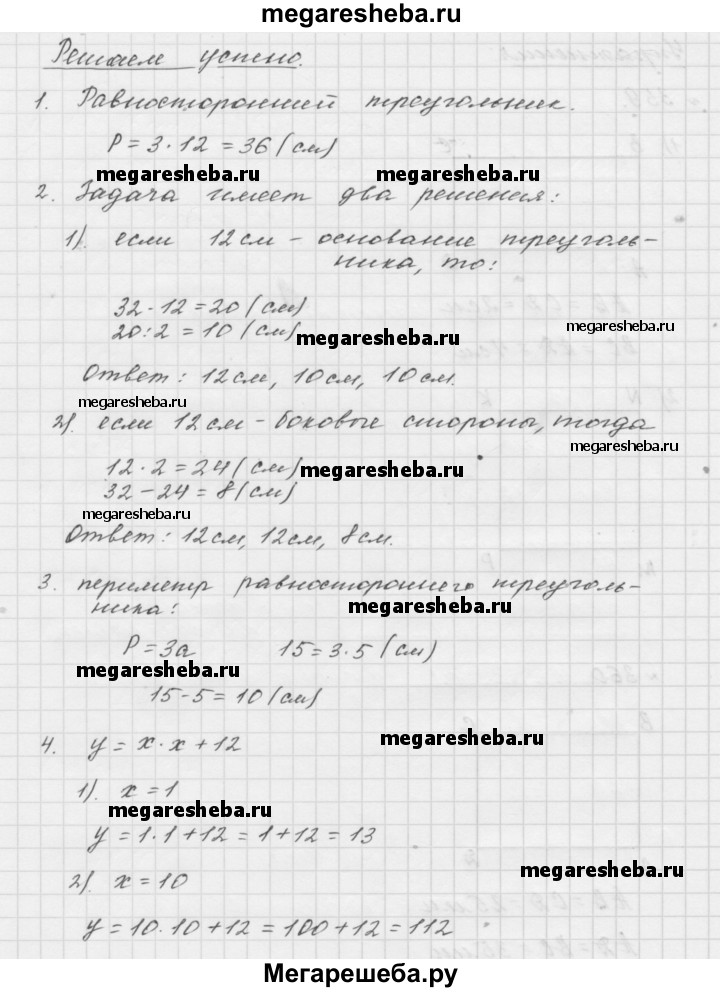 megaresheba.ru
Решаем устно.
1. Равносторонний треугольник.
P = 3 · 12 = 36 (см)
megaresheba.ru megaresheba.ru
2. Задача имеет два решения:
1). если 12 см - основание треуголь-
ника, то:
32 - 12 = 20 (см)
megaresheba.ru
20 : 2 = 10 (см)
megaresheba.ru
Ответ: 12 см, 10 см, 10 см.
megaresheba.ru
2). если 12 см - боковые стороны, тогда
megaresheba.ru
12 · 2 = 24 (см)
megaresheba.ru
32 - 24 = 8 (см)
megaresheba.ru
Ответ: 12 см, 12 см, 8 см.
3. периметр равностороннего треуголь-
ника:
megaresheba.ru
P = 3a 15 = 3 · 5 (см)
megaresheba.ru
15 - 5 = 10 (см)
4. y = x · x + 12
megaresheba.ru
1). x = 1
megaresheba.ru
y = 1 · 1 + 12 = 1 + 12 = 13
megaresheba.ru
2). x = 10
y = 10 · 10 + 12 = 100 + 12 = 112
Мегарешеба.ру